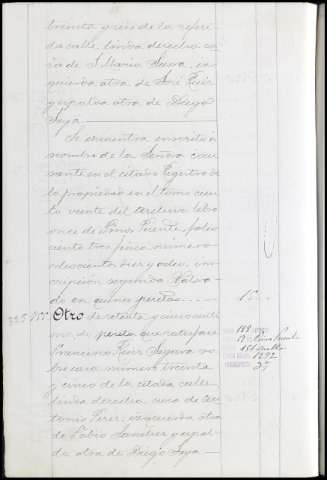 treinta y tres de la referi-
da calle, linda derecha ca-
sa de Maria Sawa, iz-
quierda otra de José Ruiz
y espalda otra de Diego
Soya
Se encuentra inscrito á
nombre de la Señora cau-
sante en el citado Registro de
la propiedad en el tomo cien-
to veinte del tercero, libro
once de Pinos Puente, folio
ciento tres finca número
ochocientos diez y ocho, ins-
cripción segunda. Valua-
do en quince pesetas
15
Otro de setenta y cinco cénti-
mos de peseta que satisface
Francisco Ruiz Segovia so-
bre casa número treinta
y cinco de la citada calle,
linda derecha, casa de An-
tonio Perez, izquierda otra
de Pablo Sanchez y espal-
da otra de Diego Soya
188
11 Pinos Puente
1292
2ª